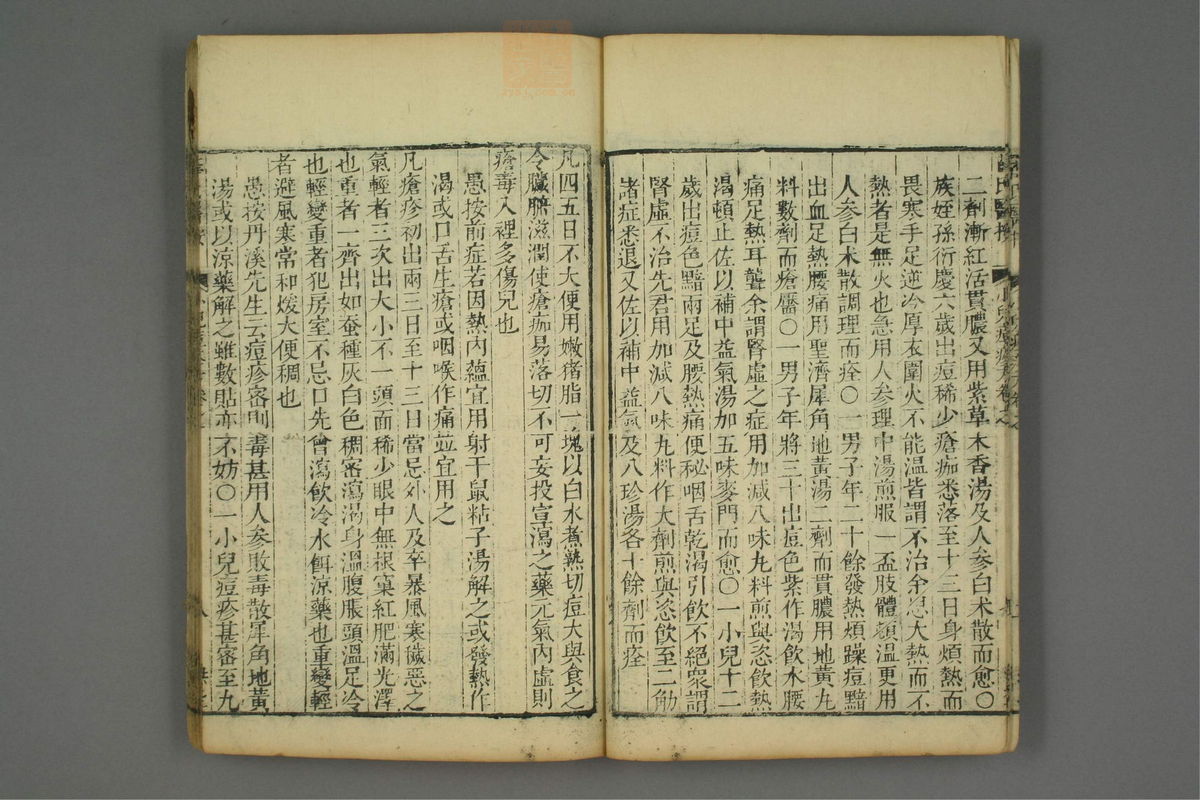 二劑漸紅活貫膿又用紫草木香湯及人參白术散而愈〇
族姪孫衍慶六歲出痘稀少瘡痂悉落至十三日身煩熱而
畏寒手足逆冷厚衣圍火不能溫皆謂不治余思大熱而不
熱者是無火也急用人參理中湯煎服一盃肢體頓溫更用
人參白术散調理而痊〇一男子年二十餘發熱煩躁痘黯
出血足熱腰痛用聖濟犀角地黃湯二劑而貫膿用地黃丸
料數劑而瘡靨〇一男子年將三十出痘色紫作渴飲水腰
痛足熱耳聾余謂腎虛之症用加減八味丸料煎與恣飲熱
渴頓止佐以補中益氣湯加五味麥門而愈〇一小兒十二
歲出痘色黯兩足及腰熱痛便秘咽舌乾渴引飲不絕衆謂
腎虛不治先君用加減八味丸料作大劑煎與恣飲至二觔
諸症悉退又佐以補中益氣及八珍湯各十餘劑而痊
凡四五日不大便用嫩猪脂一塊以白水煮熟切痘大與食之
令臟腑滋潤使瘡痂易落切不可妄投宣瀉之藥元氣內虛則
瘡毒入裡多傷兒也
愚按前症若因熱內蘊宜用射干鼠粘子湯解之或發熱作
渴或口舌生瘡或咽喉作痛並宜用之
凡瘡疹初出兩三日至十三日當忌外人及卒暴風寒穢惡之
氣輕者三次出大小不一頭面稀少眼中無根窠紅肥滿光澤
也重者一齊出如蚕種灰白色稠密瀉渴身溫腹脹頭溫足冷
也輕變重者犯房室不忌口先曾瀉飲冷水餌涼藥也重變輕
者避風寒常和煖大便稠也
愚按丹溪先生云痘疹密則毒甚用人參敗毒散犀角地黃
湯或以涼藥解之雖數貼亦不妨〇一小兒痘疹甚密至九